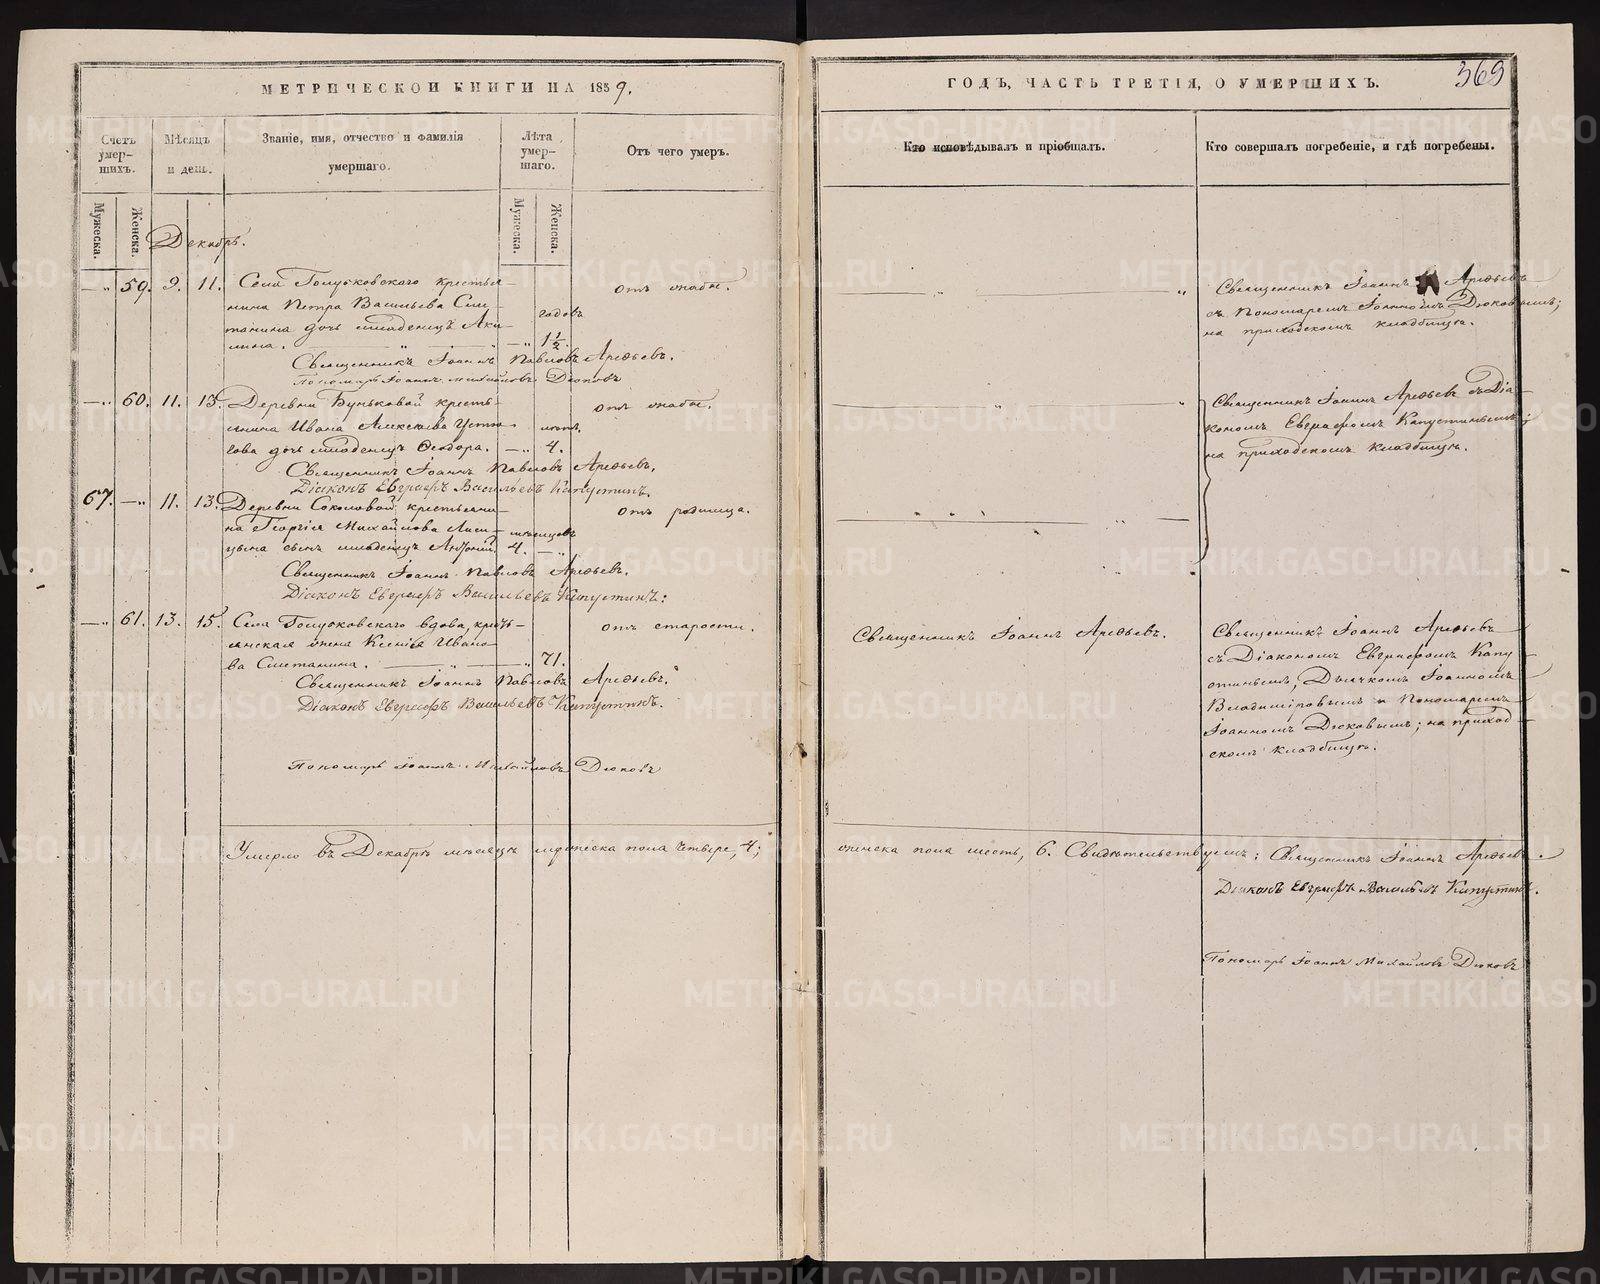 МЕТРИЧЕСКОЙ КНИГИ НА 1859.
Счетъ умер-шихъ.
Мужеска.
Женска.
Мѣсяцъ и день.
Званіе, имя, отчество и фамилія умершаго.
Лѣта умер-шаго.
Мужеска.
Женска.
Отъ чего умеръ.
Декабрь.
— „ 59. 9. 11. Села Голубковскаго крестья-
нина Петра Васильева Сме-
танина дочь младенецъ Аки-
лина. — „ — „ годовъ 1½.
отъ жабы.
Священникъ Іоаннъ Павловъ Арефьевъ.
Пономарь Іоаннъ Михайловъ Дюковъ
— „ 60. 11. 13. Деревни Буньковой кресть-
янина Ивана Алексѣева Устю-
гова дочь младенецъ Ѳеодора. — „ лѣтъ 4.
отъ жабы.
Священникъ Іоаннъ Павловъ Арефьевъ.
Діаконъ Евграфъ Васильевъ Капустинъ.
67. — „ 11. 13. Деревни Соколовой крестьяни-
на Георгія Михайлова Лиси-
цына сынъ младенецъ Антоній. мѣсяцовъ 4. — „
отъ родимца.
Священникъ Іоаннъ Павловъ Арефьевъ.
Діаконъ Евграфъ Васильевъ Капустинъ:
— „ 61. 13. 15. Села Голубковскаго вдова, кресть-
янская жена Ксенія Ивано-
ва Сметанина. — „ — „ 71.
отъ старости.
Священникъ Іоаннъ Павловъ Арефьевъ.
Діаконъ Евграфъ Васильевъ Капустинъ.
Пономарь Іоаннъ Михайловъ Дюковъ
Умерло въ Декабрѣ мѣсяцѣ мужеска пола четыре, 4;
ГОДЪ, ЧАСТЬ ТРЕТІЯ, О УМЕРШИХЪ.
369
Кто исповѣдывалъ и пріобщалъ.
Кто совершалъ погребеніе, и гдѣ погребены.
Священникъ Іоаннъ Арефьевъ
съ Пономаремъ Іоанномъ Дюковымъ;
на приходскомъ кладбищѣ.
Священникъ Іоаннъ Арефьевъ съ Діа-
кономъ Евграфомъ Капустинымъ;
на приходскомъ кладбищѣ.
Священникъ Іоаннъ Арефьевъ.
Священникъ Іоаннъ Арефьевъ
съ Діакономъ Евграфомъ Капу-
стинымъ, Дьячкомъ Іоанномъ
Владиміровымъ и Пономаремъ
Іоанномъ Дюковымъ; на приход-
скомъ кладбищѣ.
женска пола шесть, 6. Свидѣтельствуемъ: Священникъ Іоаннъ Арефьевъ.
Діаконъ Евграфъ Васильевъ Капустинъ.
Пономарь Іоаннъ Михайловъ Дюковъ
METRIKI.GASO-URAL.RU